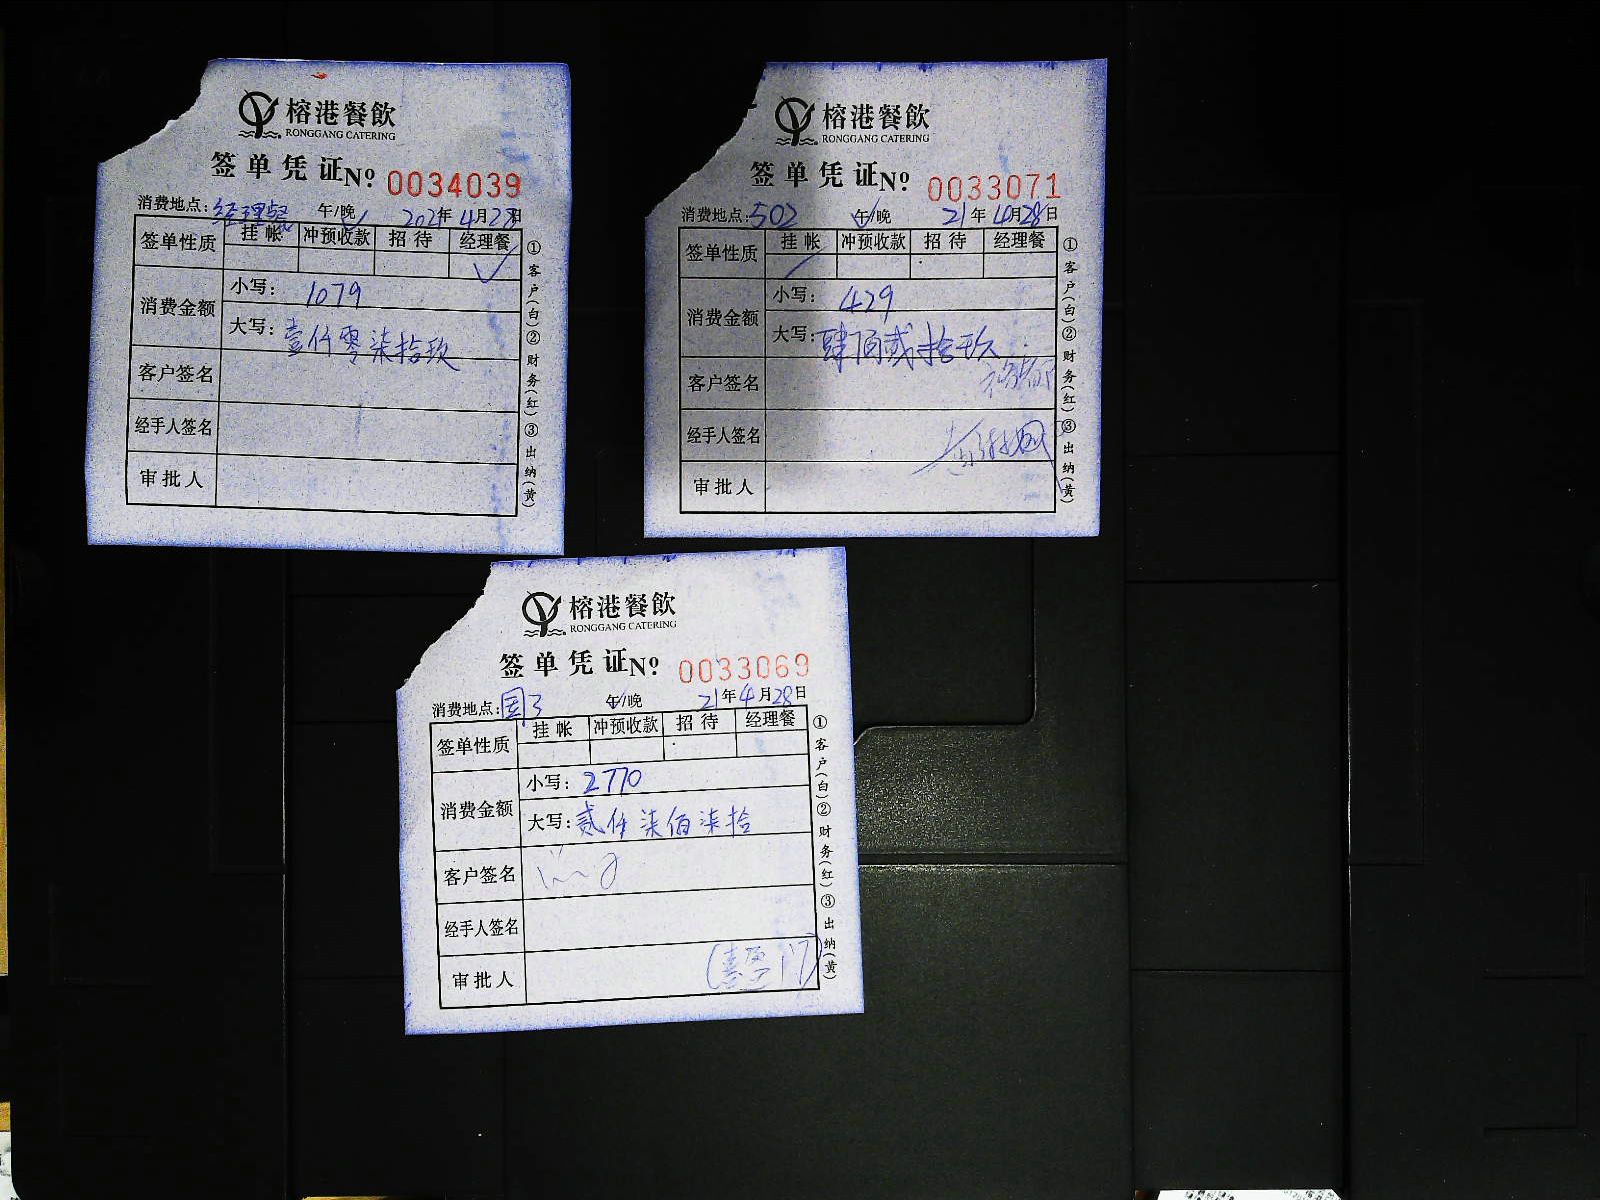 榕港餐飲
RONGGANG CATERING
签单凭证 № 0034039
消费地点：经理餐 午/晚 2021年4月28日
签单性质 挂帐 冲预收款 招待 经理餐
✓
消费金额 小写：1079
大写：壹仟零柒拾玖
客户签名
经手人签名
审批人
①客户(白)②财务(红)③出纳(黄)
榕港餐飲
RONGGANG CATERING
签单凭证 № 0033071
消费地点：502 午/晚 21年4月28日
签单性质 挂帐 冲预收款 招待 经理餐
消费金额 小写：429
大写：肆佰贰拾玖
客户签名
经手人签名
审批人
①客户(白)②财务(红)③出纳(黄)
榕港餐飲
RONGGANG CATERING
签单凭证 № 0033069
消费地点：国3 午/晚 21年4月28日
签单性质 挂帐 冲预收款 招待 经理餐
消费金额 小写：2770
大写：贰仟柒佰柒拾
客户签名
经手人签名
审批人
①客户(白)②财务(红)③出纳(黄)